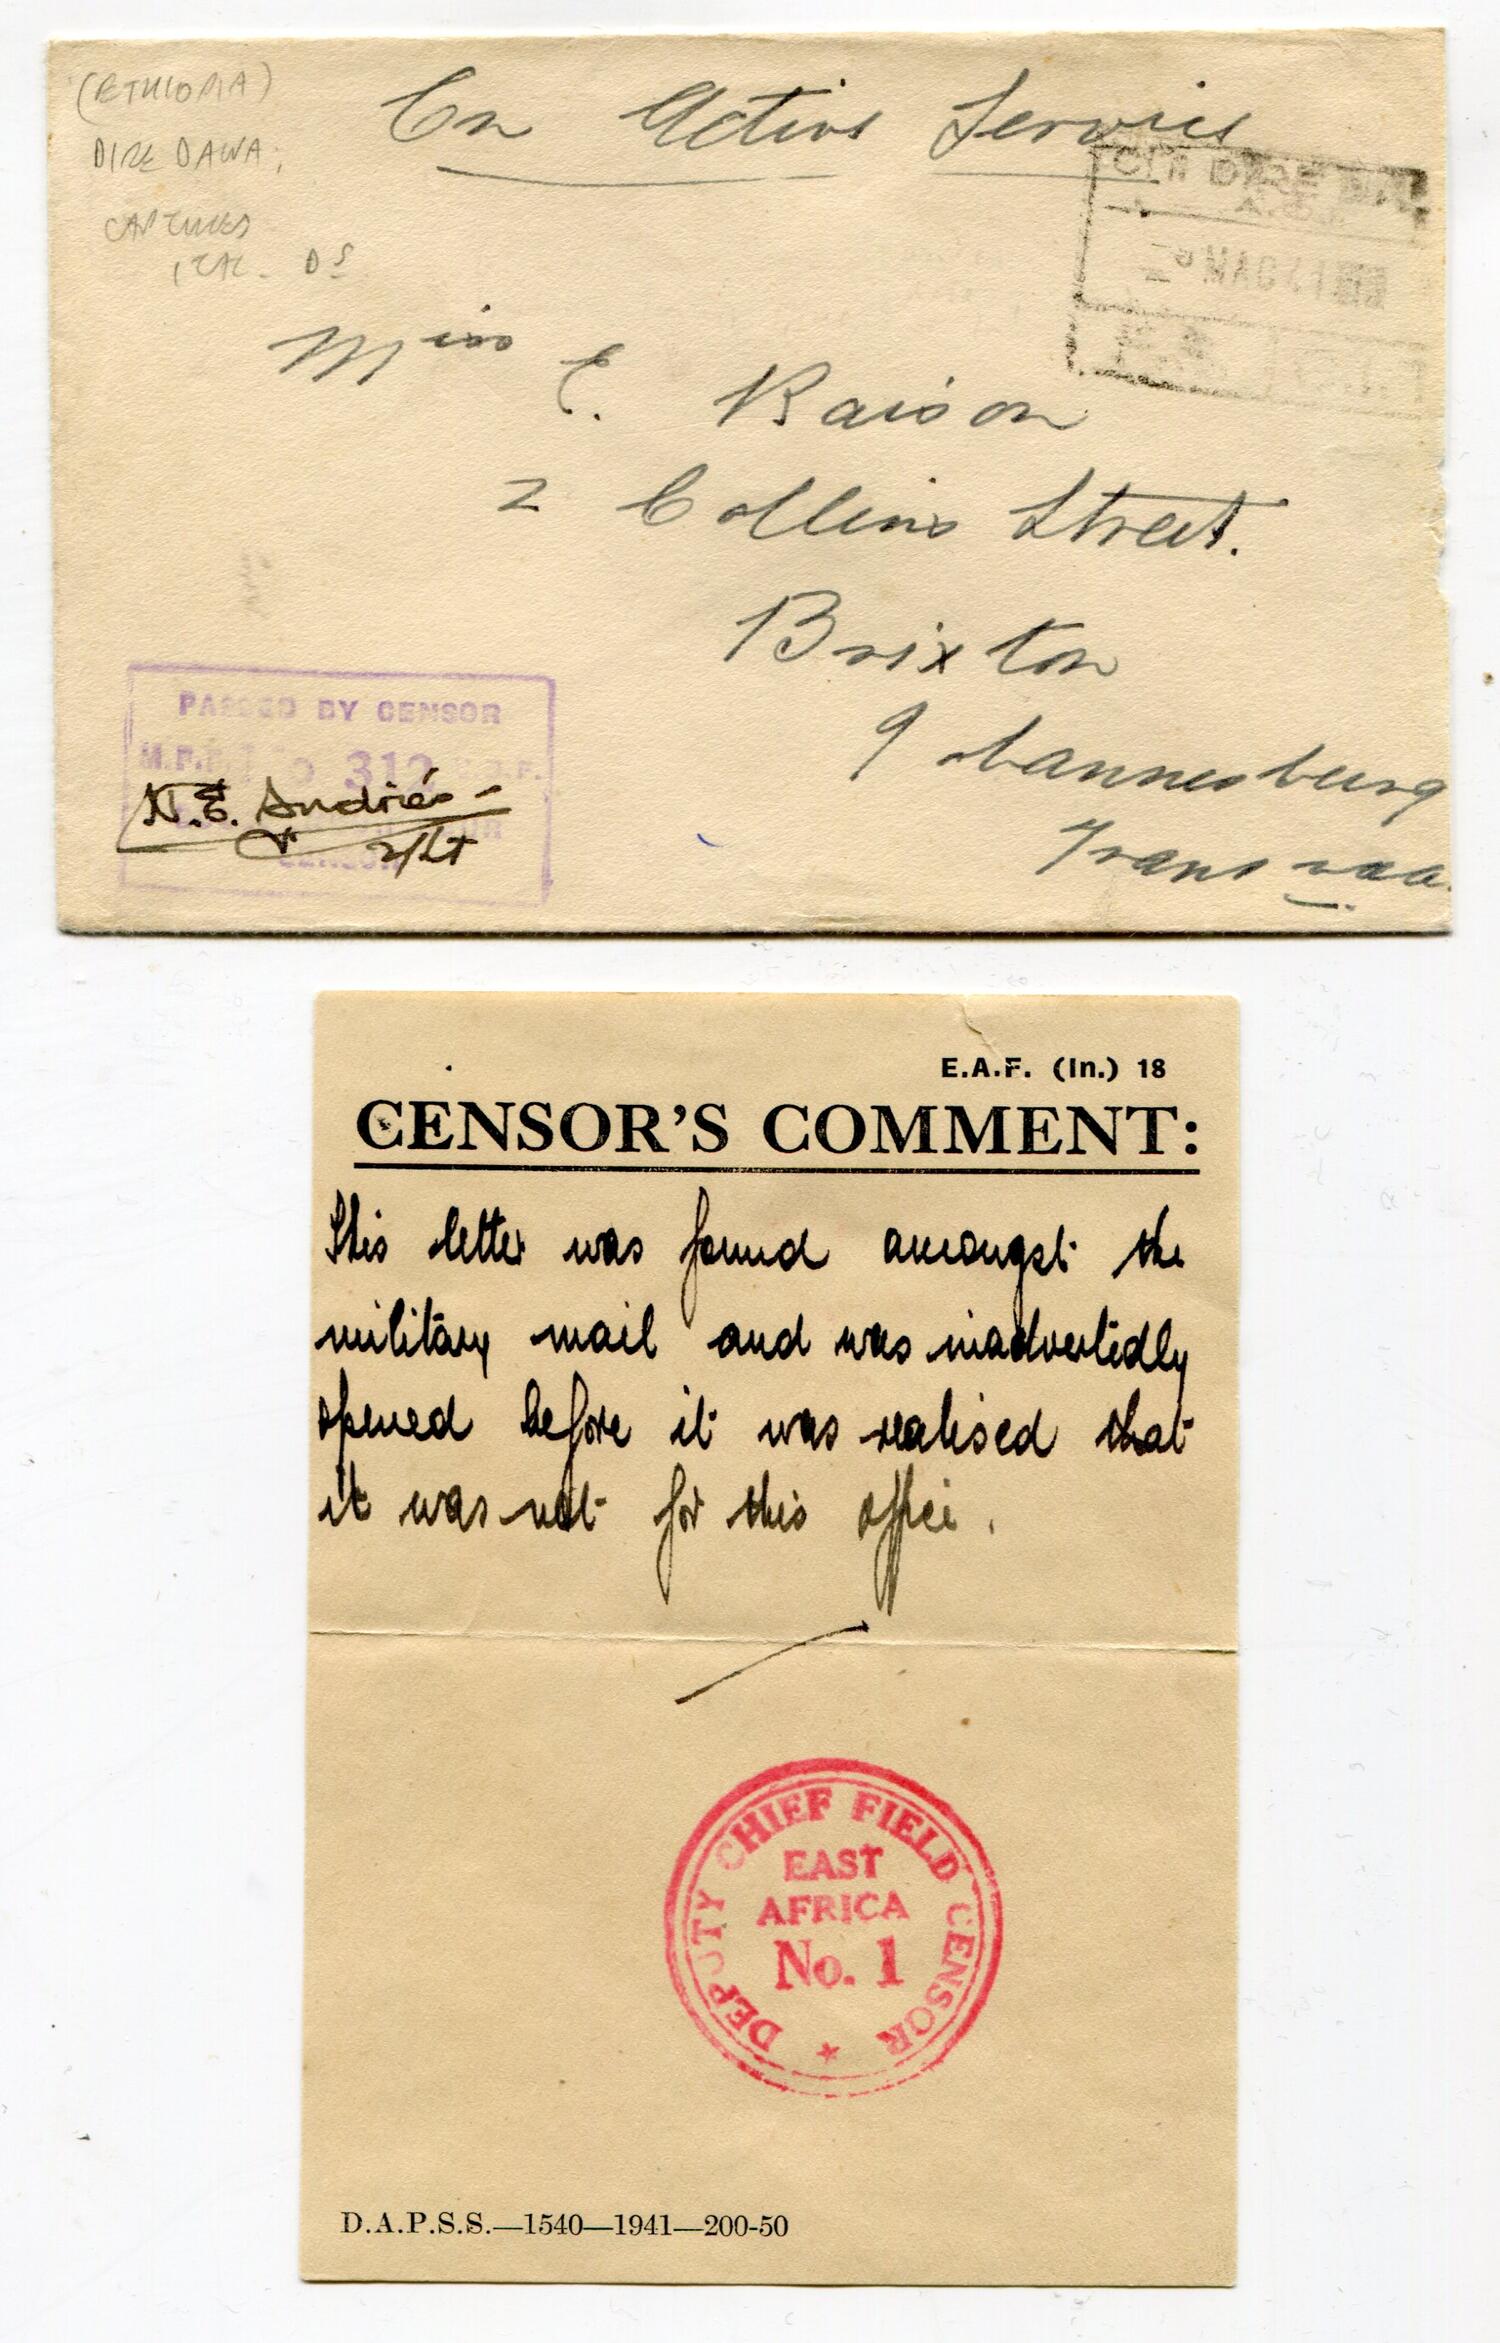 (ETHIOPIA)
DIRE DAWA;
CAPTURED
ITAL. DS
On Active Service
Miss E. Raison
2 Collins Street.
Brixton
Johannesburg
Transvaa
PASSED BY CENSOR
312
N.E. Andriés
2/Lt
CENSOR
E.A.F. (In.) 18
CENSOR'S COMMENT:
This letter was found amongst the
military mail and was inadvertedly
opened before it was realised that
it was not for this office.
DEPUTY CHIEF FIELD CENSOR
EAST
AFRICA
No. 1
D.A.P.S.S.—1540—1941—200-50